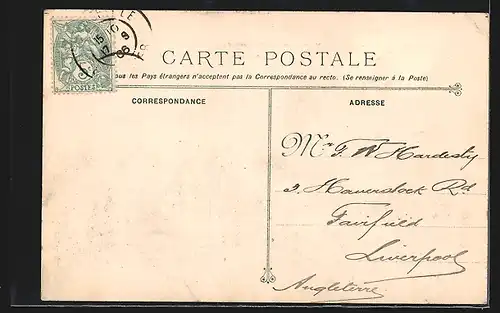 CARTE POSTALE
les Pays étrangers n'acceptent pas la Correspondance au recto. (Se renseigner à la Poste)
CORRESPONDANCE
ADRESSE
POSTES
Mr F. W Hardesty
Haverstock Rd
Fairfield
Liverpool
Angleterre